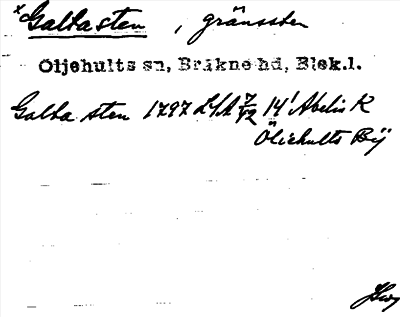 × Galtasten , gränssten
Oljehults sn, Bräkne hd, Blek.l.
Galta sten 1797 LSA 7/12 14' Abelis K
Öljehults By